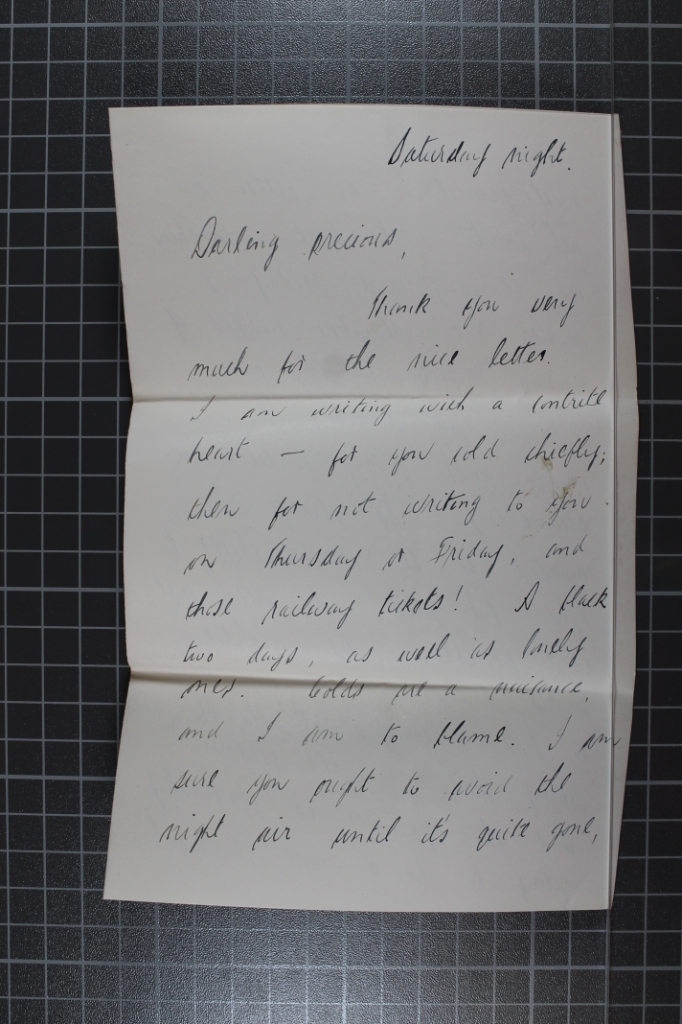 Saturday night.
Darling precious,
Thank you very
much for the nice letter.
I am writing with a contrite
heart — for you cold chiefly;
then for not writing to you
on Thursday or Friday, and
those railway tickets! A black
two days, as well as lonely
ones. Colds are a nuisance,
and I am to blame. I am
sure you ought to avoid the
night air until it's quite gone,